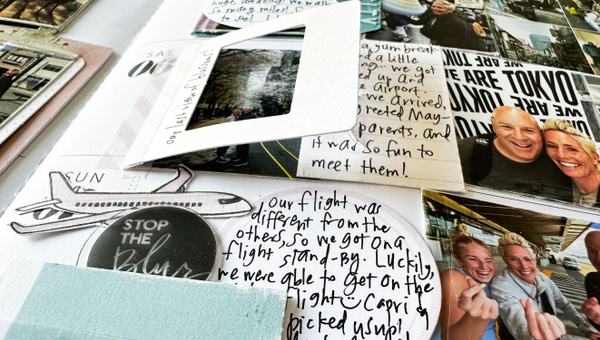 huge, and
so many miles!
SAT
06
our last NYC
a yum break
d a little
ng... we got
ed up and
e airport.
we arrived,
reeted May-
parents, and
it was so fun to
meet them!
WE ARE TOKYO
WE ARE TOKYO
SUN
07
STOP
THE
Blur
our flight was
different from the
others, so we got on a
flight stand-by. Luckily,
we were able to get on the
flight Capri &
picked us up!